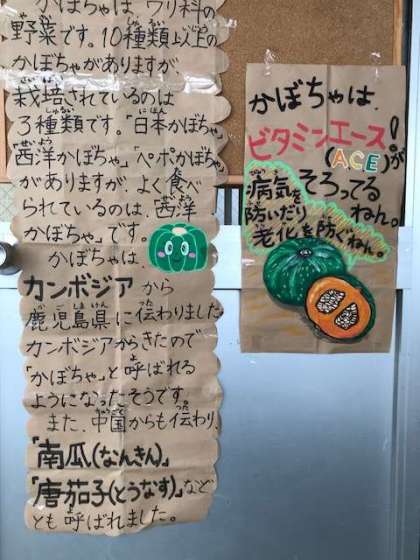 かぼちゃは、ウリ科の
野菜です。10種類以上の
かぼちゃがありますが
栽培されているのは
3種類です。「日本かぼちゃ」
「西洋かぼちゃ」「ペポかぼちゃ」
がありますが、よく食べ
られているのは、西洋
かぼちゃ」です。
かぼちゃは、
カンボジアから
鹿児島県に伝わりました。
カンボジアからきたので
「かぼちゃ」と呼ばれる
ようになったそうです。
また、中国からも伝わり、
「南瓜(なんきん)」
「唐茄子(とうなす)」など
とも呼ばれました。
かぼちゃは、
ビタミンエース!
(ACE)が
そろってる
ねん。
病気を
防いだり
老化を防ぐねん。